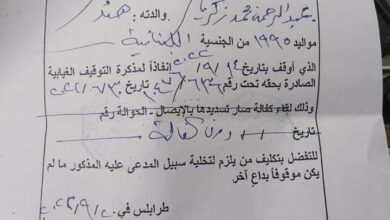 عبد الرحمن محمد زكريا والدته : هند
مواليد ١٩٩٥ من الجنسية اللبنانية
الذي أوقف بتاريخ ١٤/٩/٢٠٢٢ إنفاذاً لمذكرة التوقيف الغيابية
الصادرة بحقه تحت رقم تاريخ
وذلك لقاء كفالة صار تسديدها بالإيصال - الحوالة رقم
تاريخ دون كفالة
للتفضل بتكليف من يلزم لتخلية سبيل المدعى عليه المذكور ما لم
يكن موقوفاً بداعٍ آخر
طرابلس في